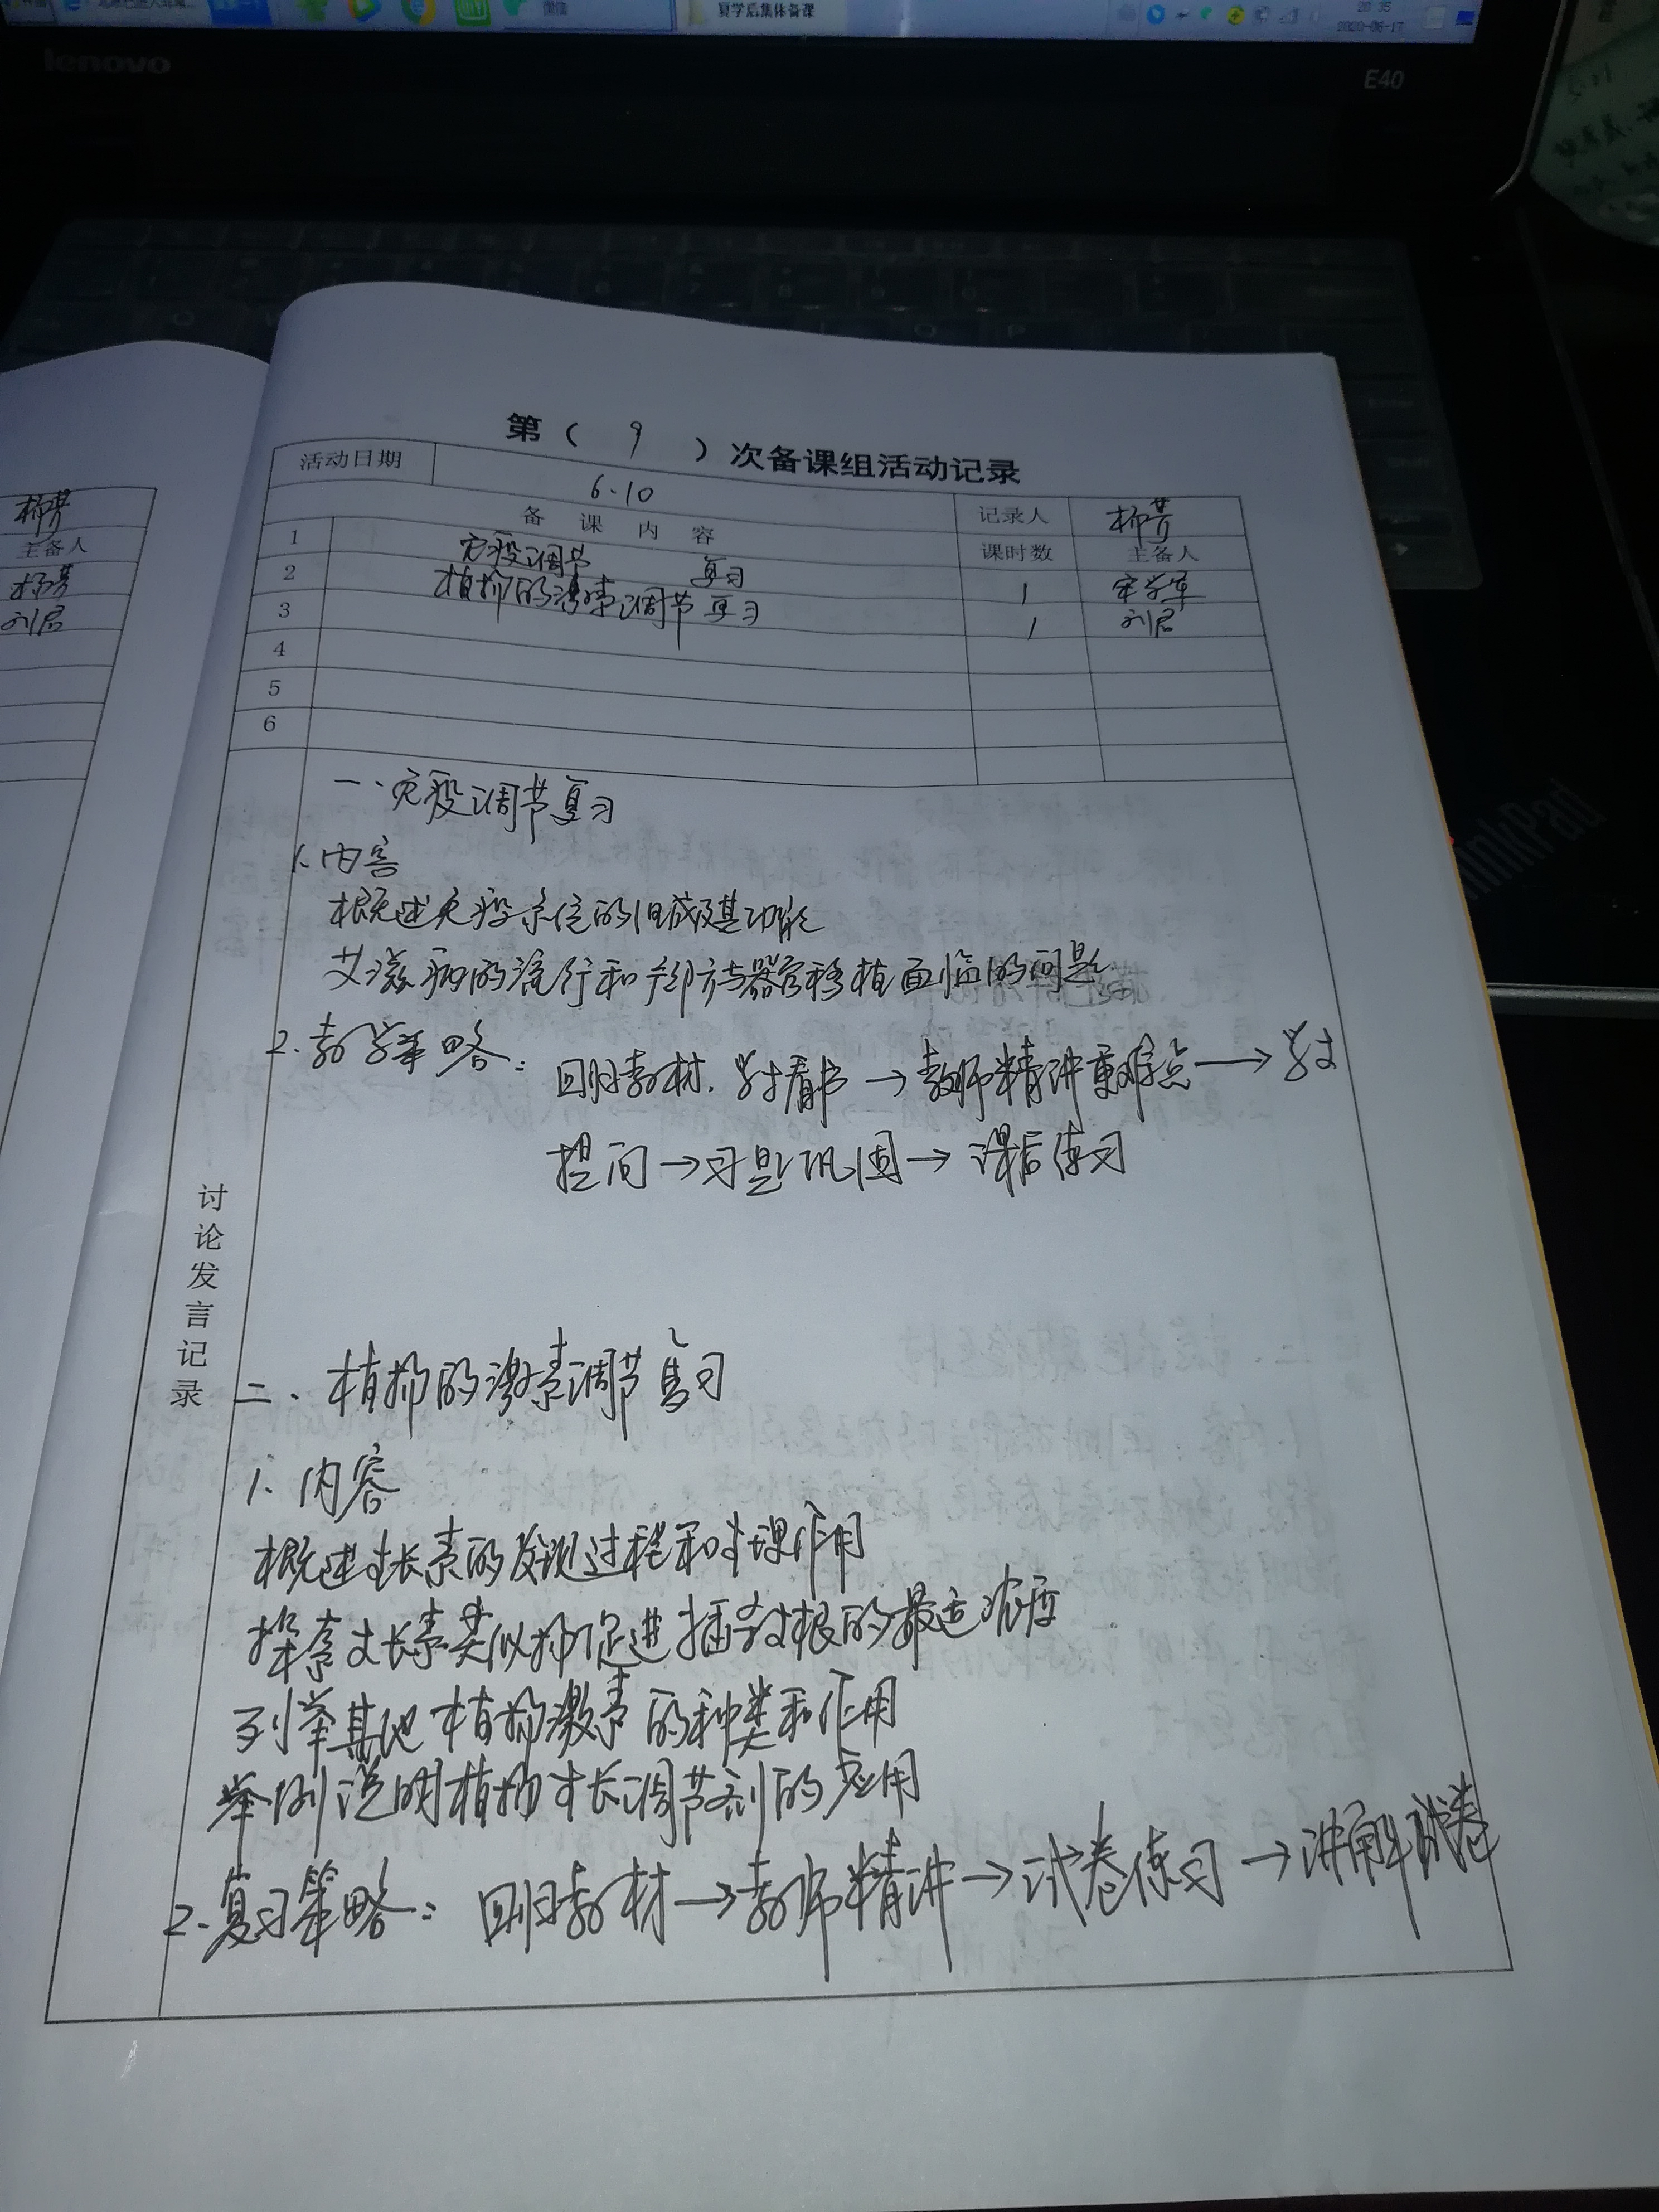 复学后集体备课
微信
20:35
2020-06-17
lenovo
E40
ThinkPad
主备人
刘君
第（ 9 ）次备课组活动记录
活动日期 6.10 记录人 柳芳
备 课 内 容 课时数 主备人
1 免疫调节 复习 1
2 植物的激素调节复习 1 刘君
3
4
5
6
讨论发言记录
一、免疫调节复习
1、内容
概述免疫系统的组成及其功能
艾滋病的流行和预防与器官移植面临的问题
2.教学策略：回归教材，学生看书→教师精讲重难点→学生
提问→习题巩固→课后练习
二、植物的激素调节复习
1、内容
概述生长素的发现过程和生理作用
探索生长素类似物促进插条生根的最适浓度
列举其他植物激素的种类和作用
举例说明植物生长调节剂的应用
2.复习策略：回归教材→教师精讲→试卷练习→讲解试卷